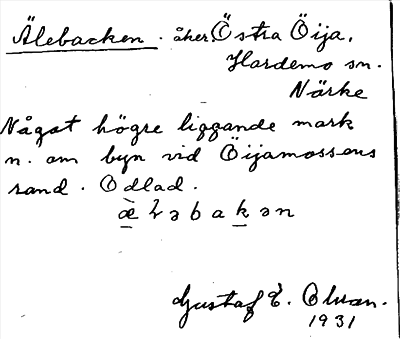 Älebacken. åker, Östra Öija,
Hardemo sn.
Närke
Något högre liggande mark
n. om byn vid Öijamossens
rand. Odlad.
æ̀ꝇəbakən
Gustaf E. Olsson.
1931